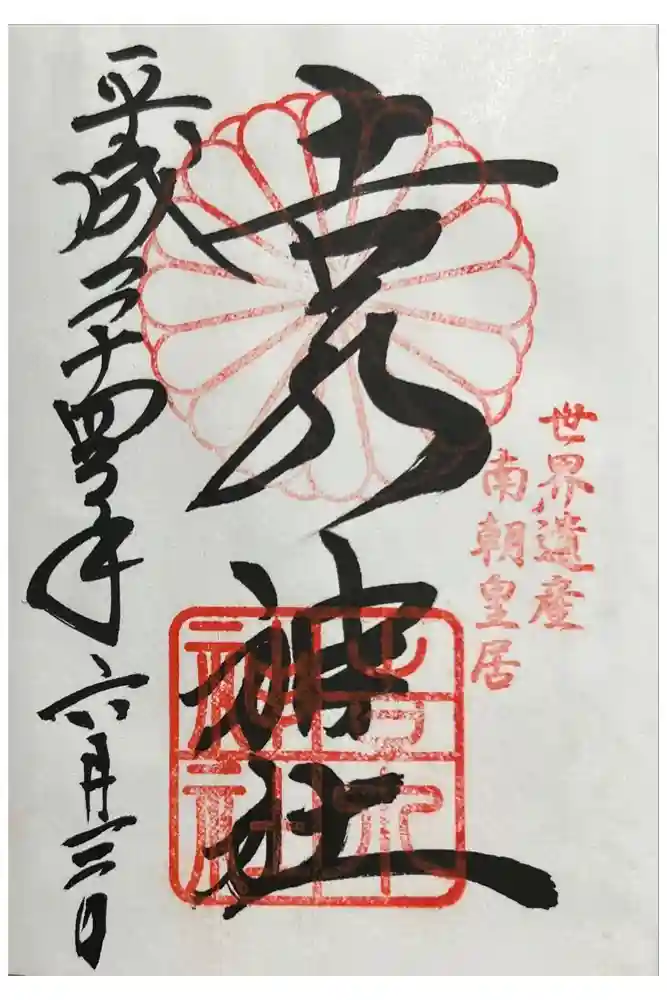 世界遺産
南朝皇居
吉水神社
吉水
神社
平成二十四年六月三日